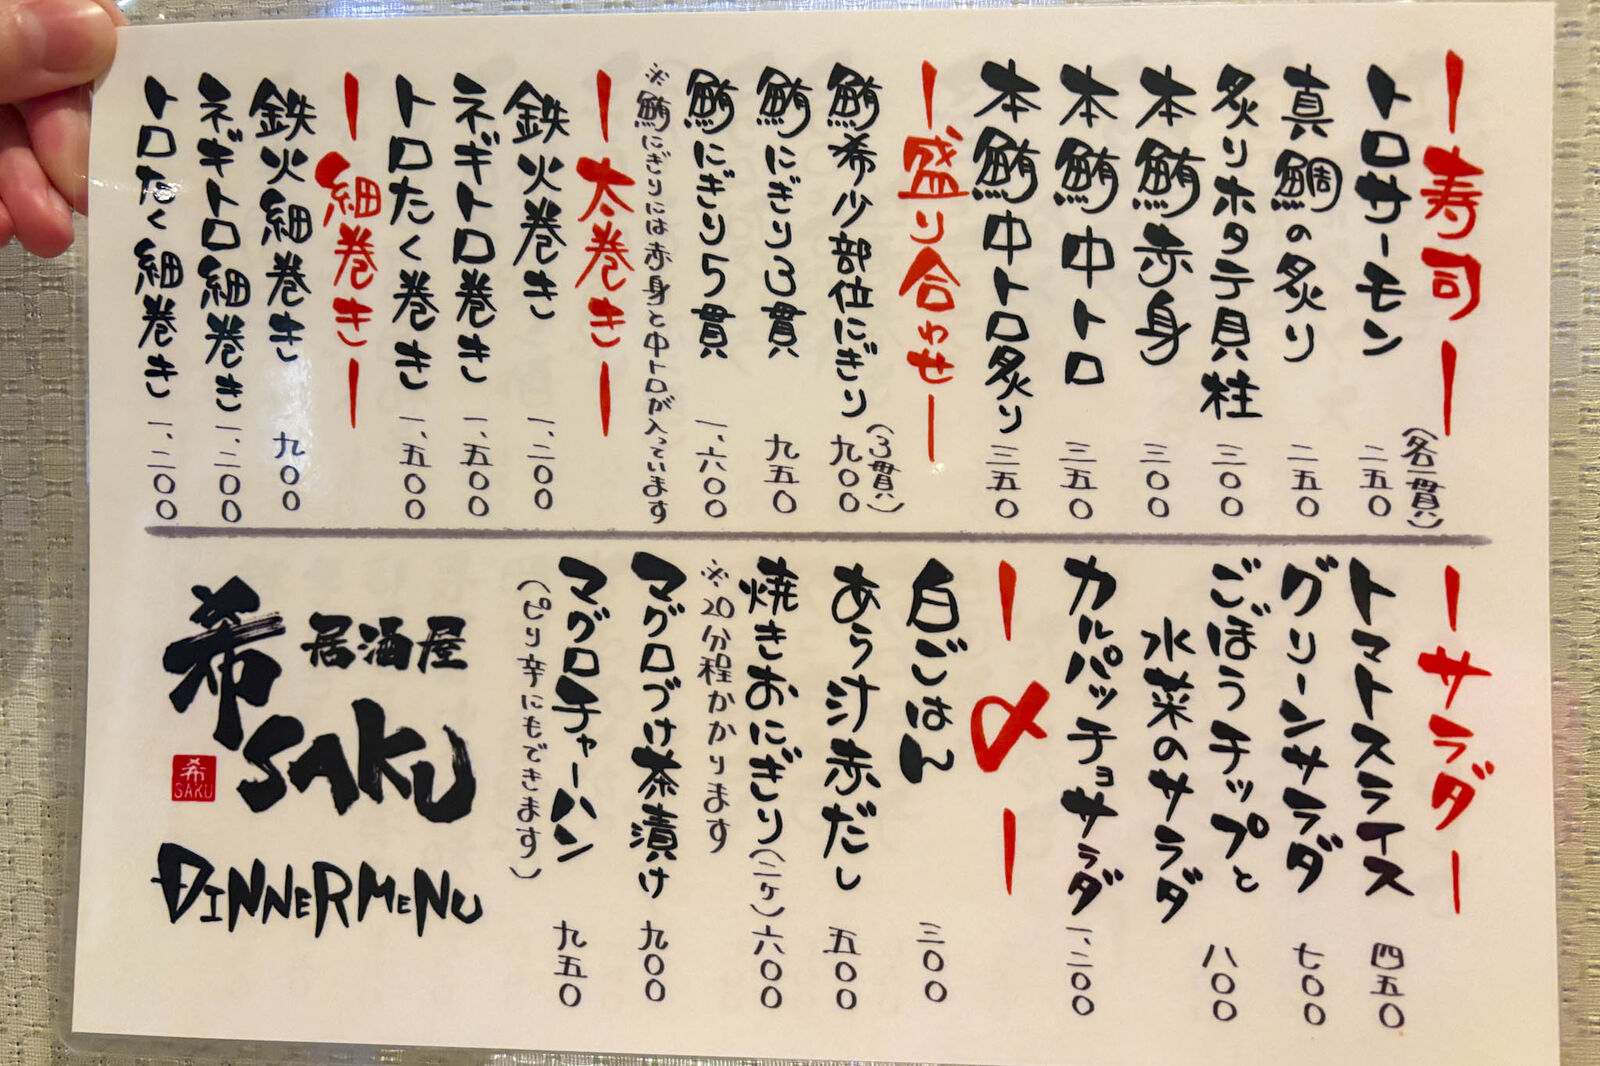 寿司
(各一貫)
トロサーモン 二五〇
真鯛の炙り 二五〇
炙りホタテ貝柱 三〇〇
本鮪赤身 三〇〇
本鮪中トロ 三五〇
本鮪中トロ炙り 三五〇
盛り合わせ
鮪希少部位にぎり(3貫) 九〇〇
鮪にぎり3貫 九五〇
鮪にぎり5貫 一、六〇〇
※鮪にぎりには赤身と中トロが入っています
太巻き
鉄火巻き 一、二〇〇
ネギトロ巻き 一、五〇〇
トロたく巻き 一、五〇〇
細巻き
鉄火細巻き 九〇〇
ネギトロ細巻き 一、二〇〇
トロたく細巻き 一、二〇〇
サラダ
トマトスライス 四五〇
グリーンサラダ 七〇〇
ごぼうチップと
水菜のサラダ 八〇〇
カルパッチョサラダ 一、二〇〇
〆
白ごはん 三〇〇
あら汁赤だし 五〇〇
焼きおにぎり(二ヶ) 六〇〇
※20分程かかります
マグロづけ茶漬け 九〇〇
マグロチャーハン 九五〇
(ピリ辛にもできます)
居酒屋
希SAKU
希
SAKU
DINNER MENU